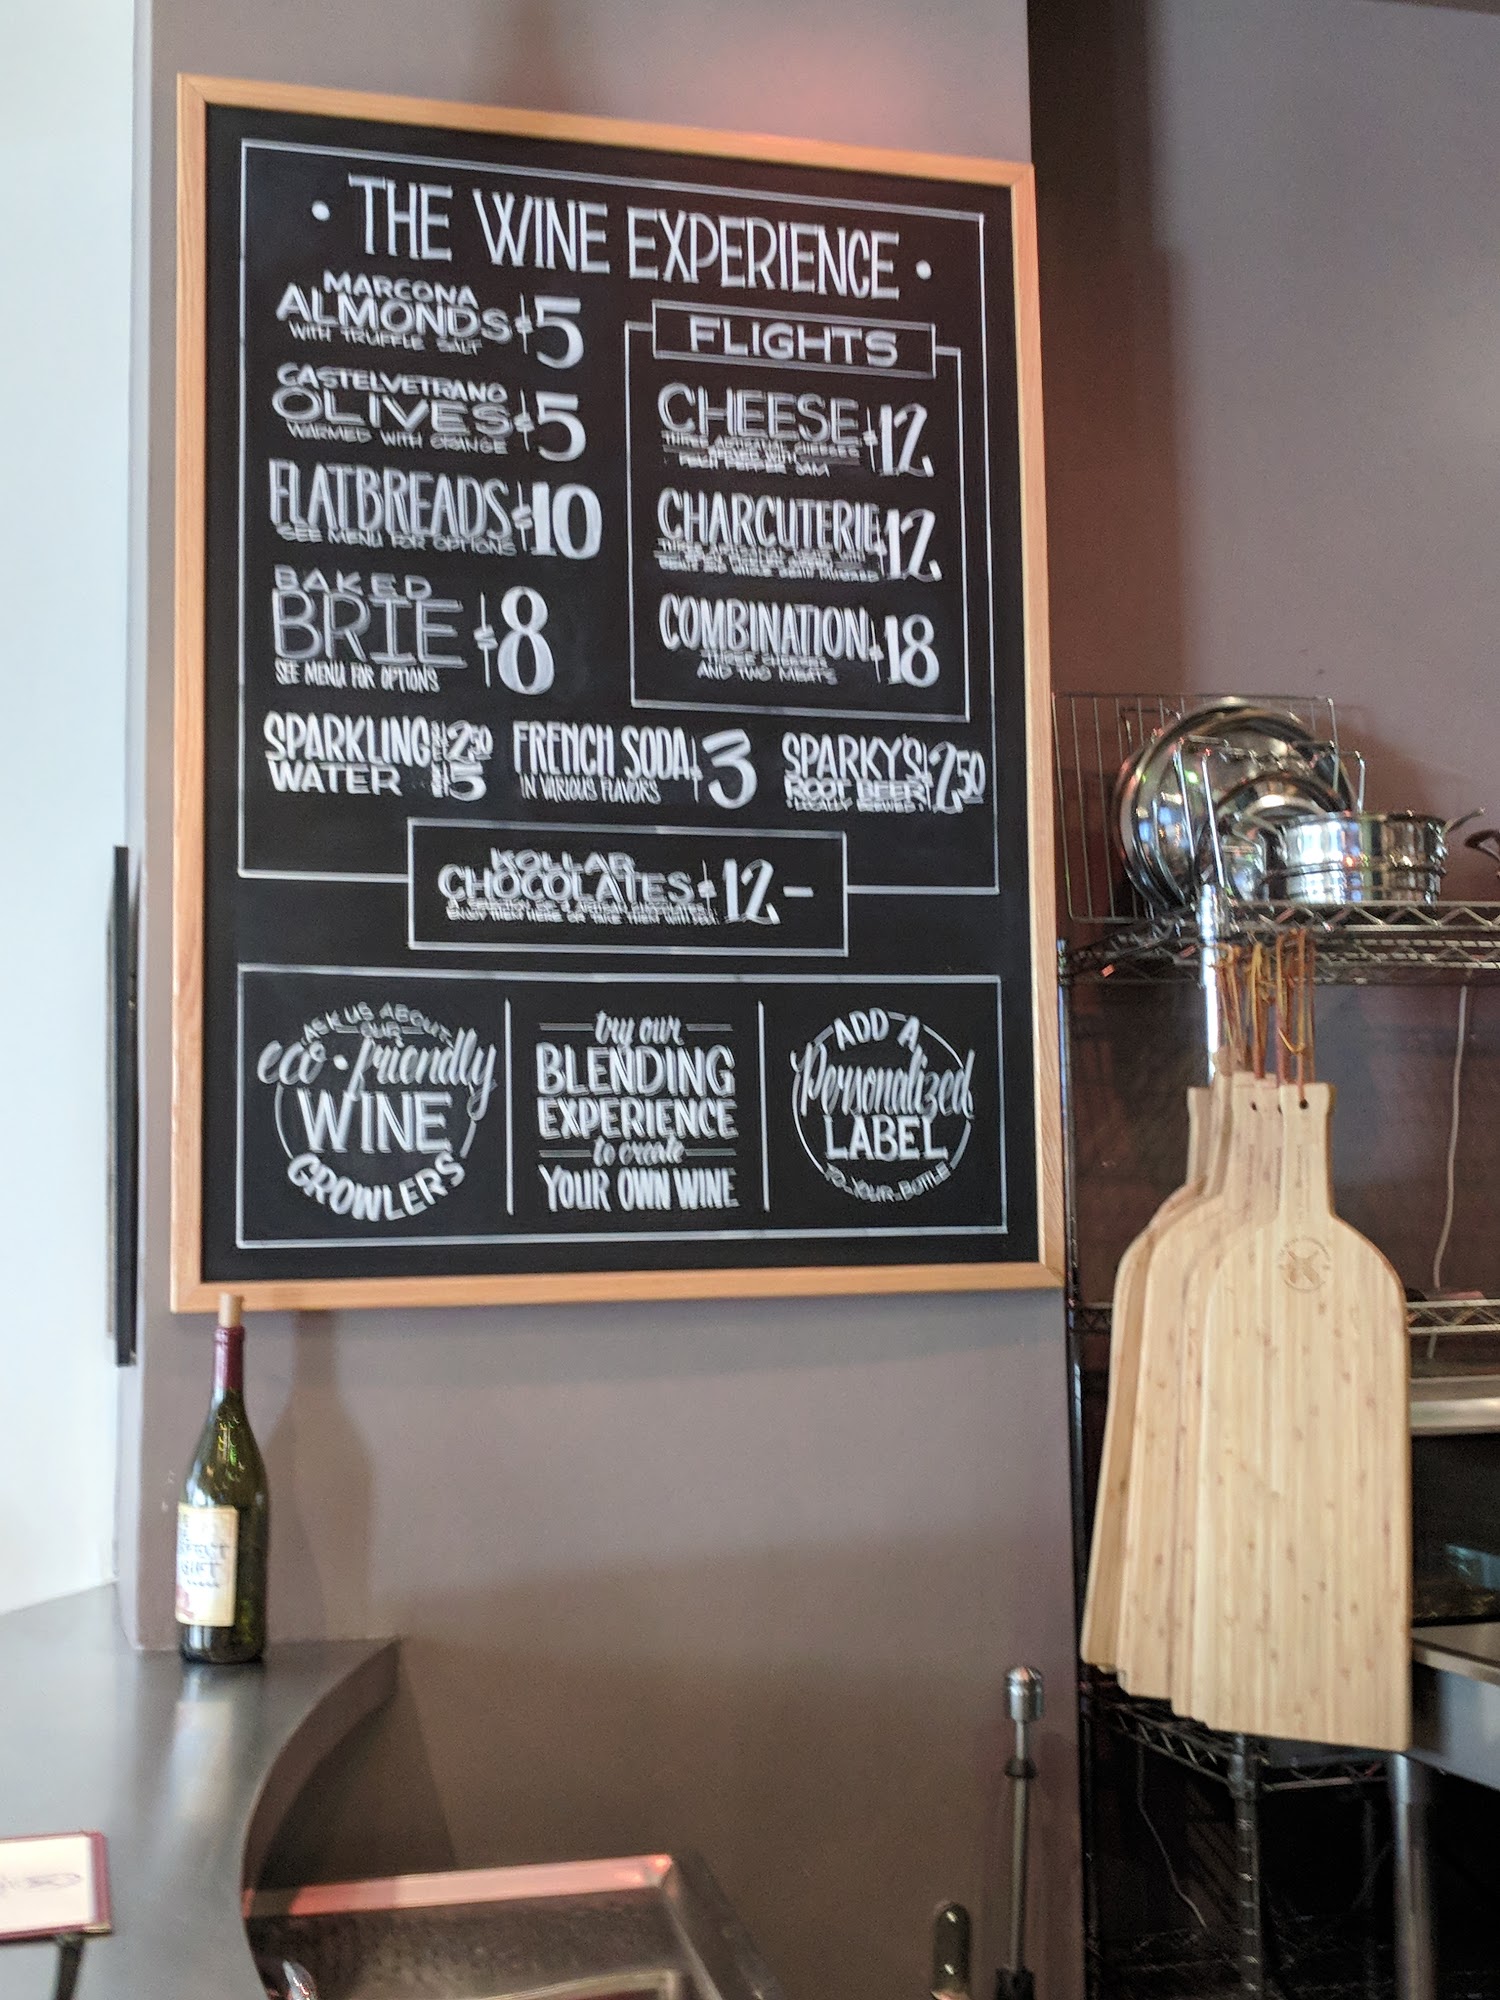 • THE WINE EXPERIENCE •
MARCONA
ALMONDS $5
WITH TRUFFLE SALT
CASTELVETRANO
OLIVES $5
WARMED WITH ORANGE
FLATBREADS $10
SEE MENU FOR OPTIONS
BAKED
BRIE $8
SEE MENU FOR OPTIONS
FLIGHTS
CHEESE $12
THREE ARTISANAL CHEESES
SERVED WITH
PEPPER JAM
CHARCUTERIE $12
WHOLE GRAIN MUSTARD
COMBINATION $18
THREE CHEESES
AND TWO MEATS
SPARKLING 2.50
WATER 5
FRENCH SODA $3
IN VARIOUS FLAVORS
SPARKY'S $2.50
ROOT BEER
• LOCALLY BREWED •
KOLLAR
CHOCOLATES $12-
ENJOY THEM HERE OR TAKE THEM WITH YOU!
ASK US ABOUT
OUR
eco-friendly
WINE
GROWLERS
try our
BLENDING
EXPERIENCE
to create
YOUR OWN WINE
ADD A
Personalized
LABEL
TO YOUR BOTTLE